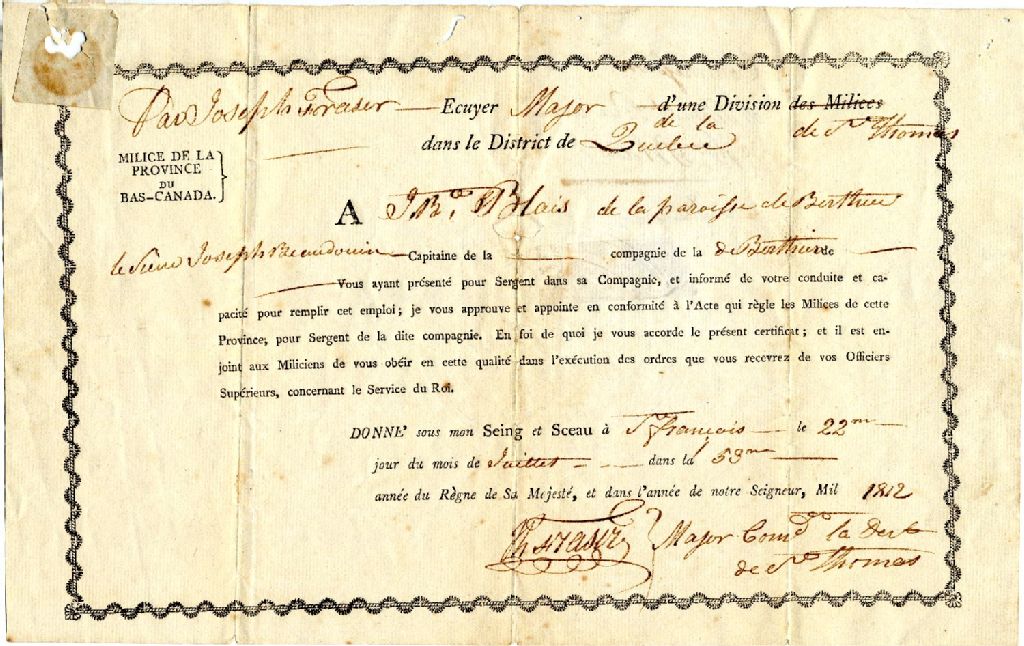 Par Joseph Fraser — Ecuyer Major — d'une Division des Milices
dans le District de Quebec de la de St Thomas
MILICE DE LA
PROVINCE
DU
BAS-CANADA.
A J. Bte Blais de la paroisse de Berthier
le Sieur Joseph Beaudouin — Capitaine de la — compagnie de la de Berthier de —
— Vous ayant présenté pour Sergent dans sa Compagnie, et informé de votre conduite et ca-
pacité pour remplir cet emploi; je vous approuve et appointe en conformité à l'Acte qui règle les Milices de cette
Province, pour Sergent de la dite compagnie. En foi de quoi je vous accorde le présent certificat; et il est en-
joint aux Miliciens de vous obéir en cette qualité dans l'exécution des ordres que vous recevrez de vos Officiers
Supérieurs, concernant le Service du Roi.
DONNE' sous mon Seing et Sceau à St François — le 22me —
jour du mois de Juillet — dans la 53me
année du Règne de Sa Majesté, et dans l'année de notre Seigneur, Mil 1812
Fraser Major Comd la
de St Thomas